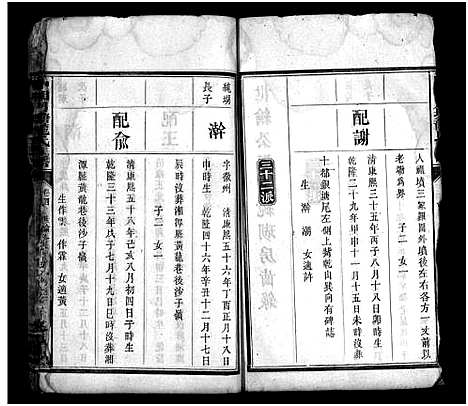 人禮墳三冢羅圍外墳後左右各方一丈前以
老塝爲界　子二　女一
配謝
清康熙三十五年丙子八月十八日卯時生
乾隆二十九年甲申十一月十五日未時歿葬
十都銀塘尾左側上黃乾山巽向有碑誌
生　澣　湖　女適許
三十二派
長子
澣
字徽州　清康熙五十六年丁酉正月十八日
申時生　乾隆四十六年辛丑十二月十七日
辰時歿葬湘潭縣黃龍巷後沙子嶺
子二　女一
配俞
清康熙五十八年己亥八月初四日子時生
乾隆三十三年戊子七月十九日巳時歿葬湘
潭縣黃龍巷後沙子嶺
生作雲　作霖　女適黃